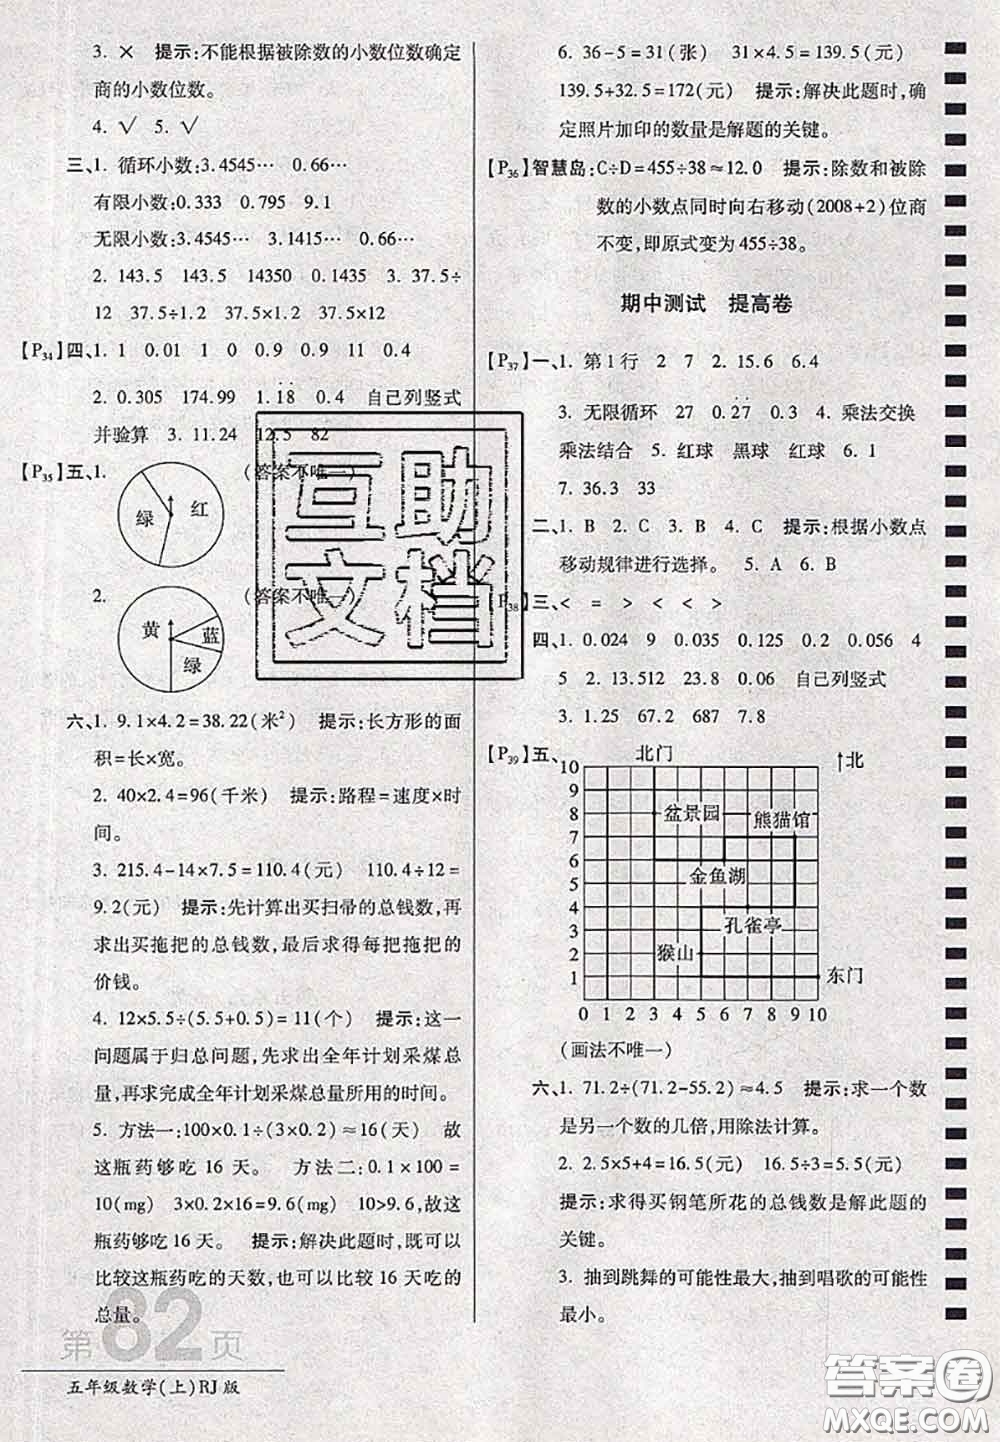 3. × 提示:不能根据被除数的小数位数确定
商的小数位数。
4. √ 5. √
三、1. 循环小数:3.4545… 0.66…
有限小数:0.333 0.795 9.1
无限小数:3.4545… 3.1415… 0.66…
2. 143.5 143.5 14350 0.1435 3. 37.5÷
12 37.5÷1.2 37.5÷12
【P34】四、1. 1 0.01 1 0 0.9 0.9 11 0.4
2. 0.305 174.99 1.1̇8̇ 0.4 自己列竖式
并验算 3. 11.24 12.5 82
【P35】五、1. (答案不唯一)
绿 红
2. (答案不唯一)
黄 蓝
绿
六、1. 9.1×4.2=38.22(米²) 提示:长方形的面
积=长×宽。
2. 40×2.4=96(千米) 提示:路程=速度×时
间。
3. 215.4-14×7.5=110.4(元) 110.4÷12=
9.2(元) 提示:先计算出买扫帚的总钱数,再
求出买拖把的总钱数,最后求得每把拖把的
价钱。
4. 12×5.5÷(5.5+0.5)=11(个) 提示:这一
问题属于归总问题,先求出全年计划采煤总
量,再求完成全年计划采煤总量所用的时间。
5. 方法一:100×0.1÷(3×0.2)≈16(天) 故
这瓶药够吃 16 天。 方法二:0.1×100=
10(mg) 3×0.2×16=9.6(mg) 10>9.6,故这
瓶药够吃 16 天。 提示:解决此题时,既可以
比较这瓶药吃的天数,也可以比较 16 天吃的
总量。
第82页
五年级数学(上)RJ版
6. 36-5=31(张) 31×4.5=139.5(元)
139.5+32.5=172(元) 提示:解决此题时,确
定照片加印的数量是解题的关键。
【P36】智慧岛:C÷D=455÷38≈12.0 提示:除数和被除
数的小数点同时向右移动(2008+2)位商
不变,即原式变为 455÷38。
期中测试 提高卷
【P37】一、1. 第1行 2 7 2. 15.6 6.4
3. 无限循环 27 0.2̇7̇ 0.3 4. 乘法交换
乘法结合 5. 红球 黑球 红球 6. 1
7. 36.3 33
二、1. B 2. C 3. B 4. C 提示:根据小数点
移动规律进行选择。 5. A 6. B
【P38】三、< = > < < >
四、1. 0.024 9 0.035 0.125 0.2 0.056 4
5 2. 13.512 23.8 0.06 自己列竖式
3. 1.25 67.2 687 7.8
【P39】五、
北门 ↑北
10
9
8 盆景园
7 熊猫馆
6
5 金鱼湖
4
3 孔雀亭
2 猴山
1 东门
0 1 2 3 4 5 6 7 8 9 10
(画法不唯一)
六、1. 71.2÷(71.2-55.2)≈4.5 提示:求一个数
是另一个数的几倍,用除法计算。
2. 2.5×5+4=16.5(元) 16.5÷3=5.5(元)
提示:求得买钢笔所花的总钱数是解此题的
关键。
3. 抽到跳舞的可能性最大,抽到唱歌的可能性
最小。
互助
文档
答案圈
MXQE.COM